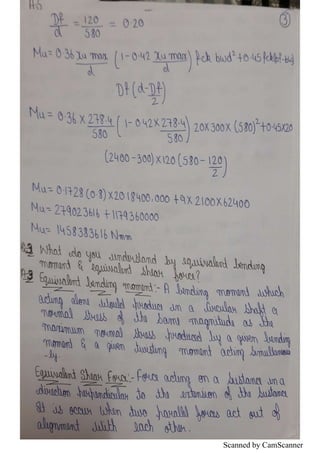 A5
③
Df/d = 120/580 = 0.20
Mu = 0.36 xu max/d (1 - 0.42 xu max/d) fck bwd² + 0.45 fck(bf-bw)
Df (d - Df/2)
Mu = 0.36 x 278.4/580 (1 - 0.42 x 278.4/580) 20x300x (580)² + 0.45x20
(2400-300) x120 (580 - 120/2)
Mu = 0.1728 (0.8) x20 18400,000 + 9 x 2100x62400
Mu = 279023616 + 1179360000
Mu = 1458383616 Nmm
Q.3 What do you understand by equivalent bending
moment & equivalent shear force?
A.3 Equivalent bending moment :- A bending moment which
acting alone would produce in a circular shaft a
normal stress of the same magnitude as the
maximum normal stress produced by a given bending
moment & a given twisting moment acting simultaneous
-ly.
Equivalent Shear Force :- Force acting on a substance in a
direction perpendicular to the extension of the substance
It is occur when two parallel forces act out of
alignment with each other.
Scanned by CamScanner